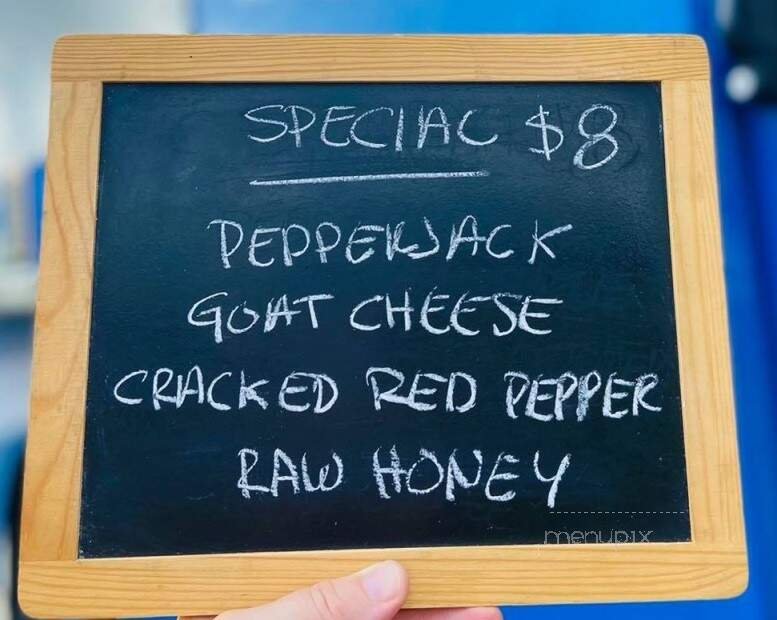 SPECIAL $8
PEPPERJACK
GOAT CHEESE
CRACKED RED PEPPER
RAW HONEY
menupix